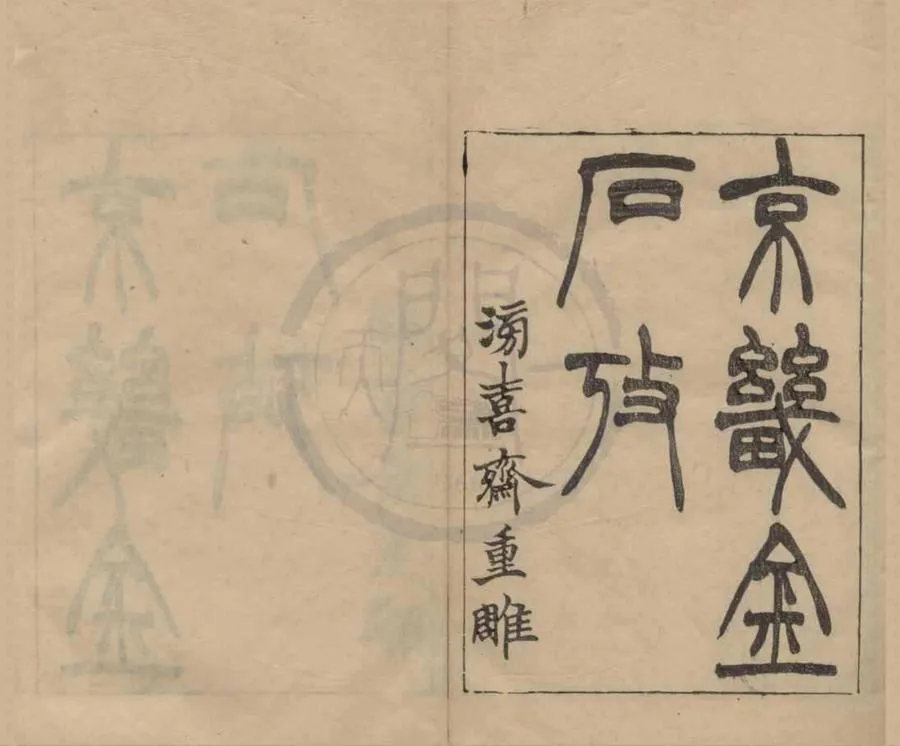 京畿金
石攷
滂喜齋重雕